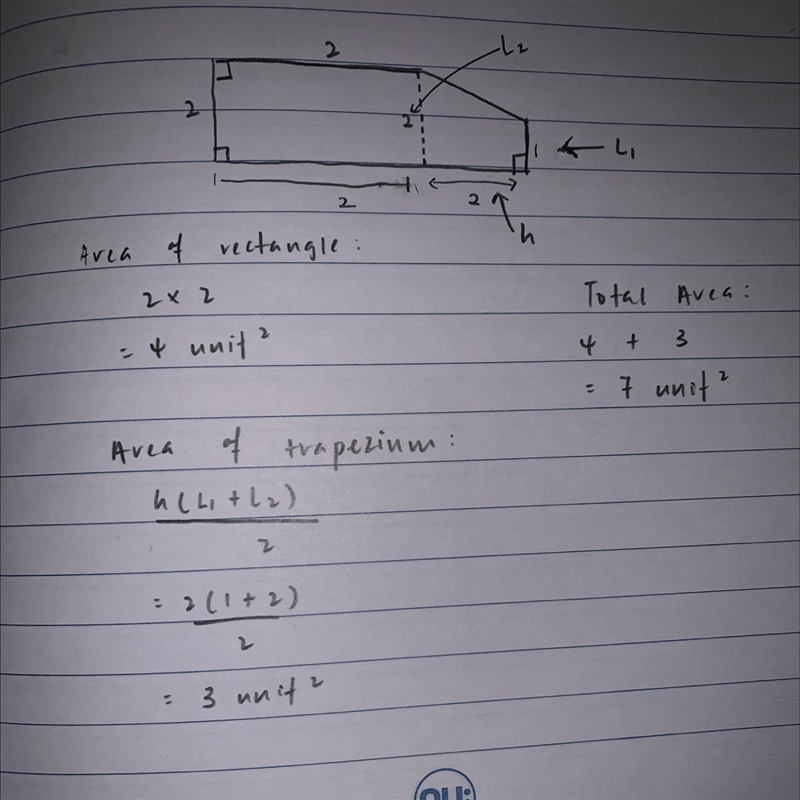 2
L2
2
2
1
L1
2
2
h
Area of rectangle:
2 x 2
= 4 unit²
Total Area:
4 + 3
= 7 unit²
Area of trapezium:
h(L1 + L2)
2
= 2(1 + 2)
2
= 3 unit²